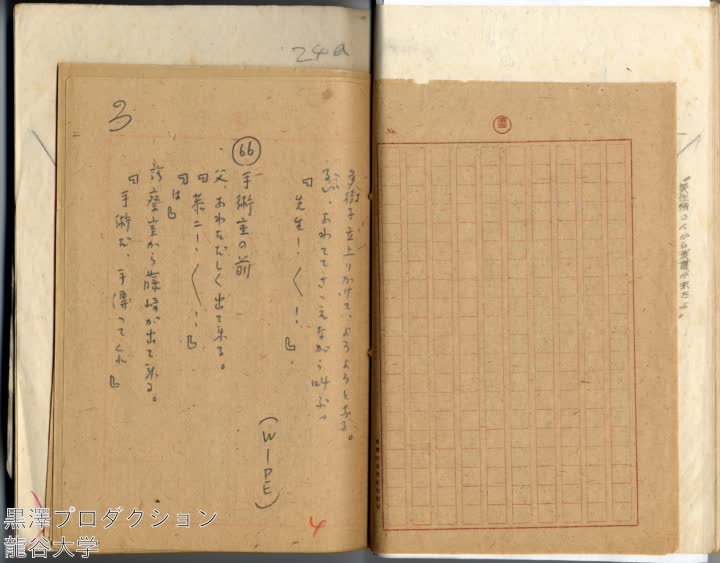 24a
多樹子立上りかけて、よろよろとなる。
恵、あわててさゝえながら叫ぶ。
「先生！〱！」
(WIPE)
66 手術室の前
父、あわたゞしく出て来る。
「恭二！〱！」
「はい」
診察室から藤崎が出て来る。
「手術だ、手傳ってくれ」
3
4
No.
黒澤プロダクション
龍谷大学